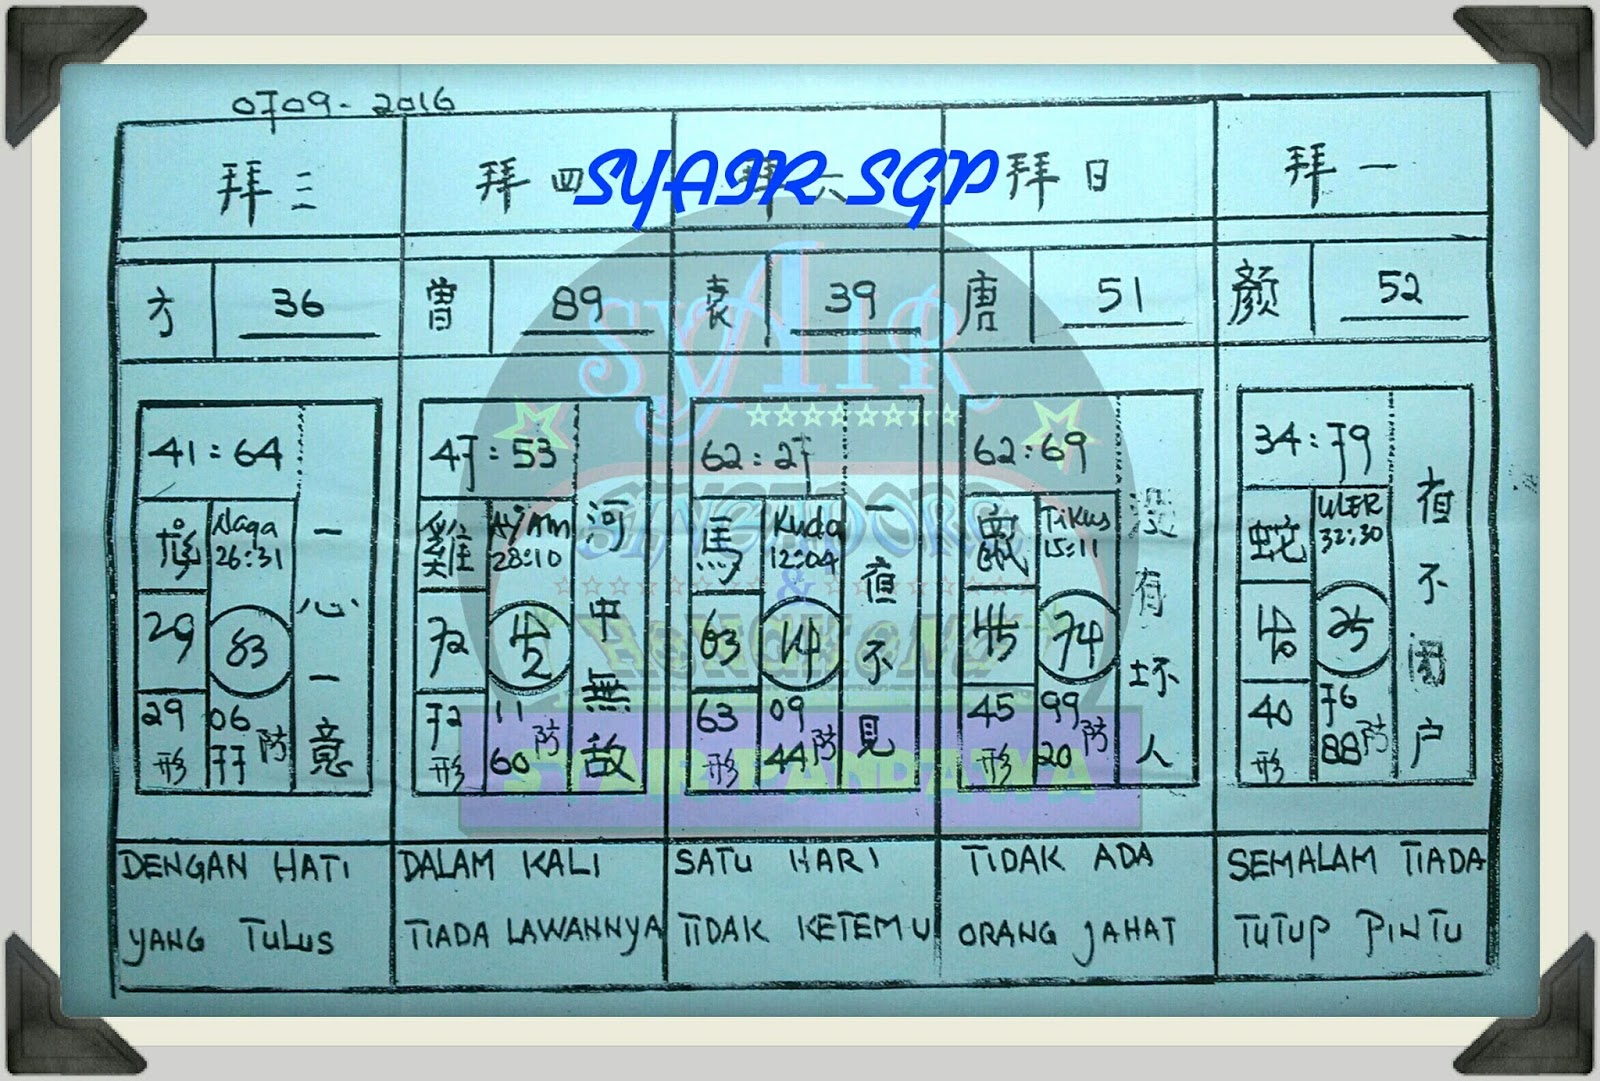 0709-2016
拜三
拜四
拜六
拜日
拜一
SYAIR SGP
方 36
曾 89
袁 39
唐 51
颜 52
41:64
Naga
26:31
29
83
29
形
06
77
防
一心一意
47:53
雞
AyAm
28:10
72
42
72
形
11
60
防
河中無敵
62:27
馬
Kuda
12:04
63
14
63
形
09
44
防
一宿不見
62:69
Tikus
15:11
45
74
45
形
99
20
防
没有坏人
34:79
蛇
ULER
32:30
40
25
40
形
76
88
防
宿不闭户
SYAIR
SINGAPORE
&
HONGKONG
SYAIR PANDAWA
DENGAN HATI
YANG TULUS
DALAM KALI
TIADA LAWANNYA
SATU HARI
TIDAK KETEMU
TIDAK ADA
ORANG JAHAT
SEMALAM TIADA
TUTUP PINTU